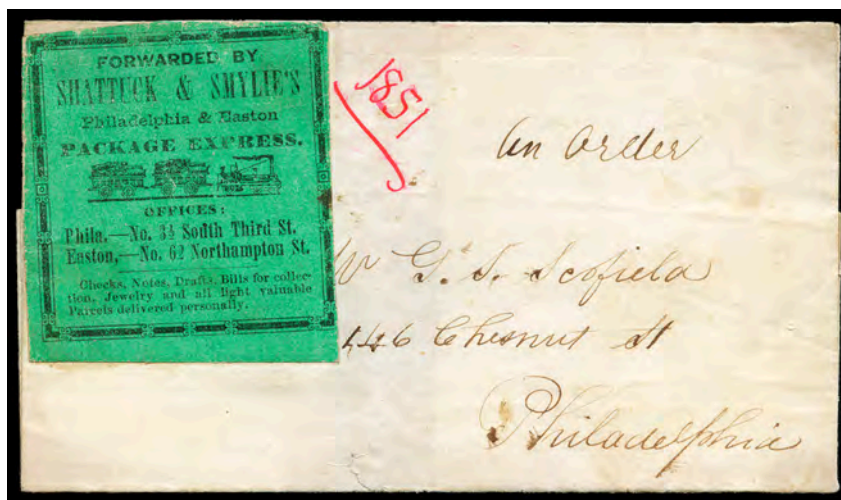 FORWARDED BY
SHATTUCK & SMYLIE'S
Philadelphia & Easton
PACKAGE EXPRESS.
OFFICES:
Phila.—No. 3½ South Third St.
Easton,—No. 62 Northampton St.
Checks, Notes, Drafts, Bills for collec-
tion, Jewelry and all light valuable
Parcels delivered personally.
1851
An Order
G. S. Scofield
146 Chesnut St
Philadelphia